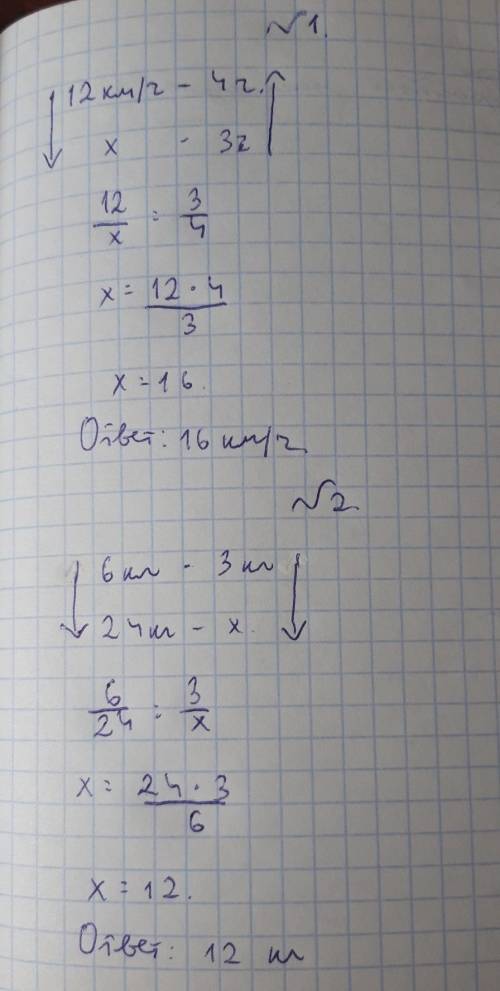 №1.
12 км/ч - 4 ч.
x - 3ч
12/x = 3/4
x = 12 · 4 / 3
x = 16.
Ответ: 16 км/ч
№2
6 кг - 3 кг
24 кг - x.
6/24 = 3/x
x = 24 · 3 / 6
x = 12.
Ответ: 12 кг